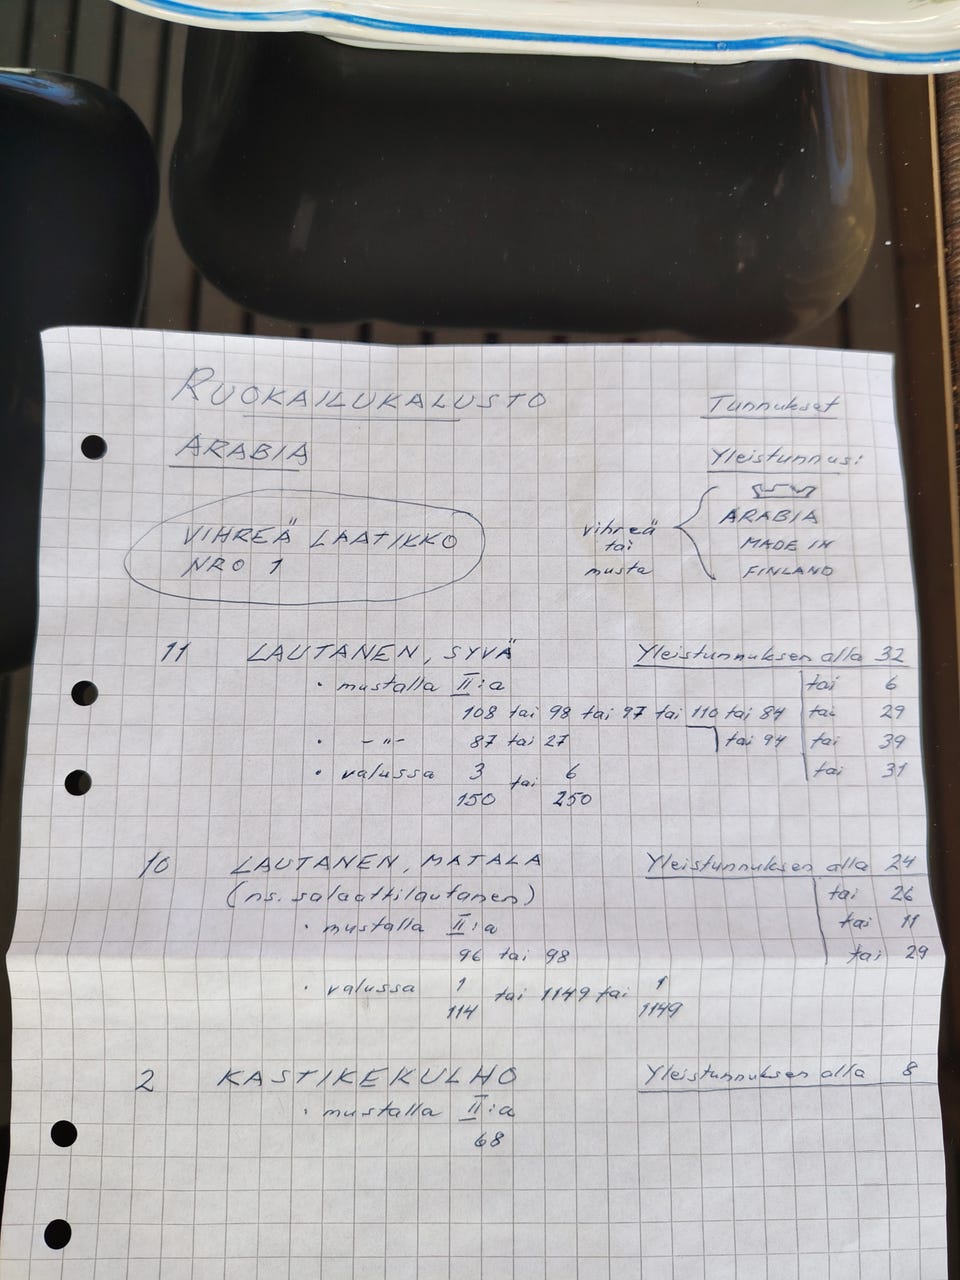 RUOKAILUKALUSTO
ARABIA
VIHREÄ LAATIKKO
NRO 1
Tunnukset
Yleistunnus:
vihreä
tai
musta
ARABIA
MADE IN
FINLAND
11 LAUTANEN, SYVÄ
Yleistunnuksen alla 32
tai 6
tai 29
tai 39
tai 31
• mustalla II:a
108 tai 98 tai 97 tai 110 tai 84
tai 94
• -"- 87 tai 27
• valussa 3 tai 6
150 250
10 LAUTANEN, MATALA
(ns. salaattilautanen)
Yleistunnuksen alla 24
tai 26
tai 11
tai 29
• mustalla II:a
96 tai 98
• valussa 1 tai 1149 tai 1
114 1149
2 KASTIKEKULHO
Yleistunnuksen alla 8
• mustalla II:a
68